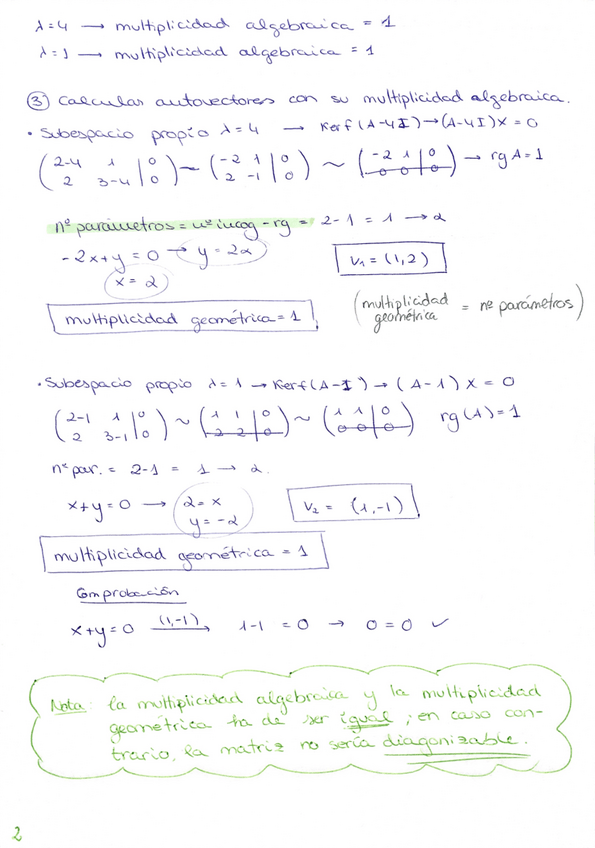 λ=4 → multiplicidad algebraica = 1
λ=1 → multiplicidad algebraica = 1
③ Calcular autovectores con su multiplicidad algebraica.
• Subespacio propio λ=4 → Kerf(A-4I)→(A-4I)X=0
(2-4 1 | 0 ; 2 3-4 | 0) ~ (-2 1 | 0 ; 2 -1 | 0) ~ (-2 1 | 0 ; 0 0 | 0) → rg A=1
nº parámetros = nº incog - rg = 2-1 = 1 → α
-2x+y=0 → y=2α
x=α
V₁ = (1,2)
multiplicidad geométrica = 1
(multiplicidad geométrica = nº parámetros)
• Subespacio propio λ=1 → Kerf(A-I) → (A-1)X=0
(2-1 1 | 0 ; 2 3-1 | 0) ~ (1 1 | 0 ; 2 2 | 0) ~ (1 1 | 0 ; 0 0 | 0) rg(A)=1
nº par. = 2-1 = 1 → α.
x+y=0 → α=x
y=-α
V₂ = (1,-1)
multiplicidad geométrica = 1
Comprobación
x+y=0 (1,-1)→ 1-1 = 0 → 0=0 ✓
Nota: la multiplicidad algebraica y la multiplicidad
geométrica ha de ser igual; en caso con-
trario, la matriz no sería diagonizable.
2